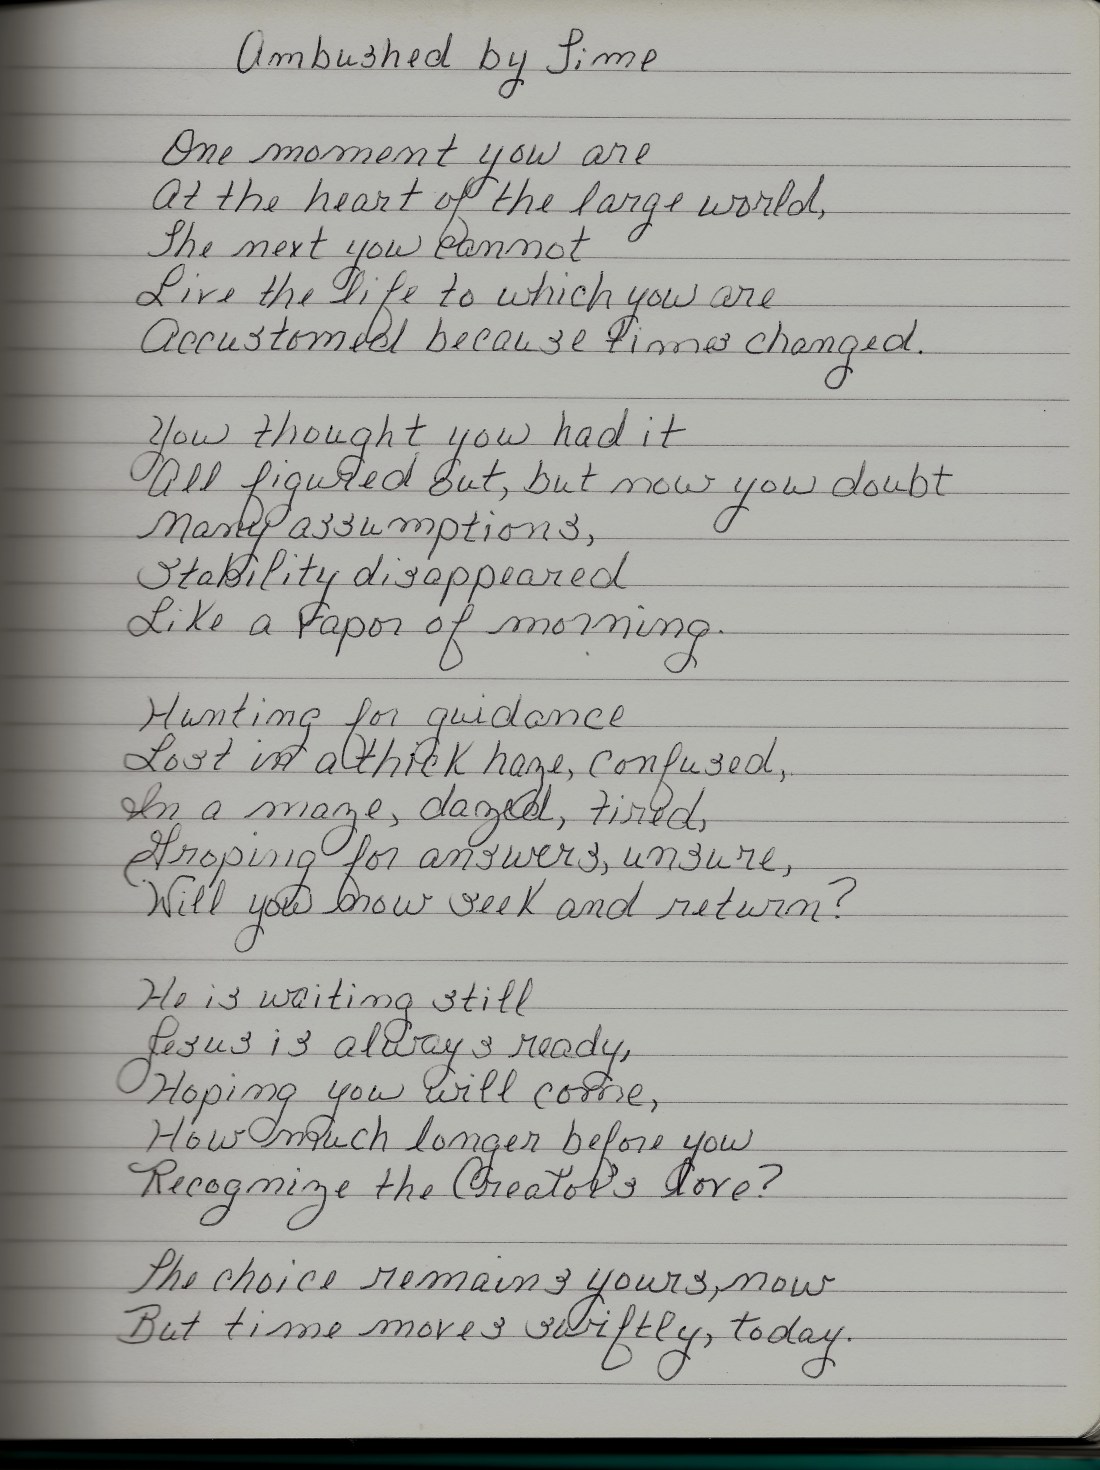 Ambushed by Time
One moment you are
At the heart of the large world,
The next you cannot
Live the life to which you are
Accustomed because times changed.
You thought you had it
All figured out, but now you doubt
Many assumptions,
Stability disappeared
Like a vapor of morning.
Hunting for guidance
Lost in a thick haze, confused,
In a maze, dazed, tired,
Groping for answers, unsure,
Will you now seek and return?
He is waiting still
Jesus is always ready,
Hoping you will come,
How much longer before you
Recognize the Creator's love?
The choice remains yours, now
But time moves swiftly, today.